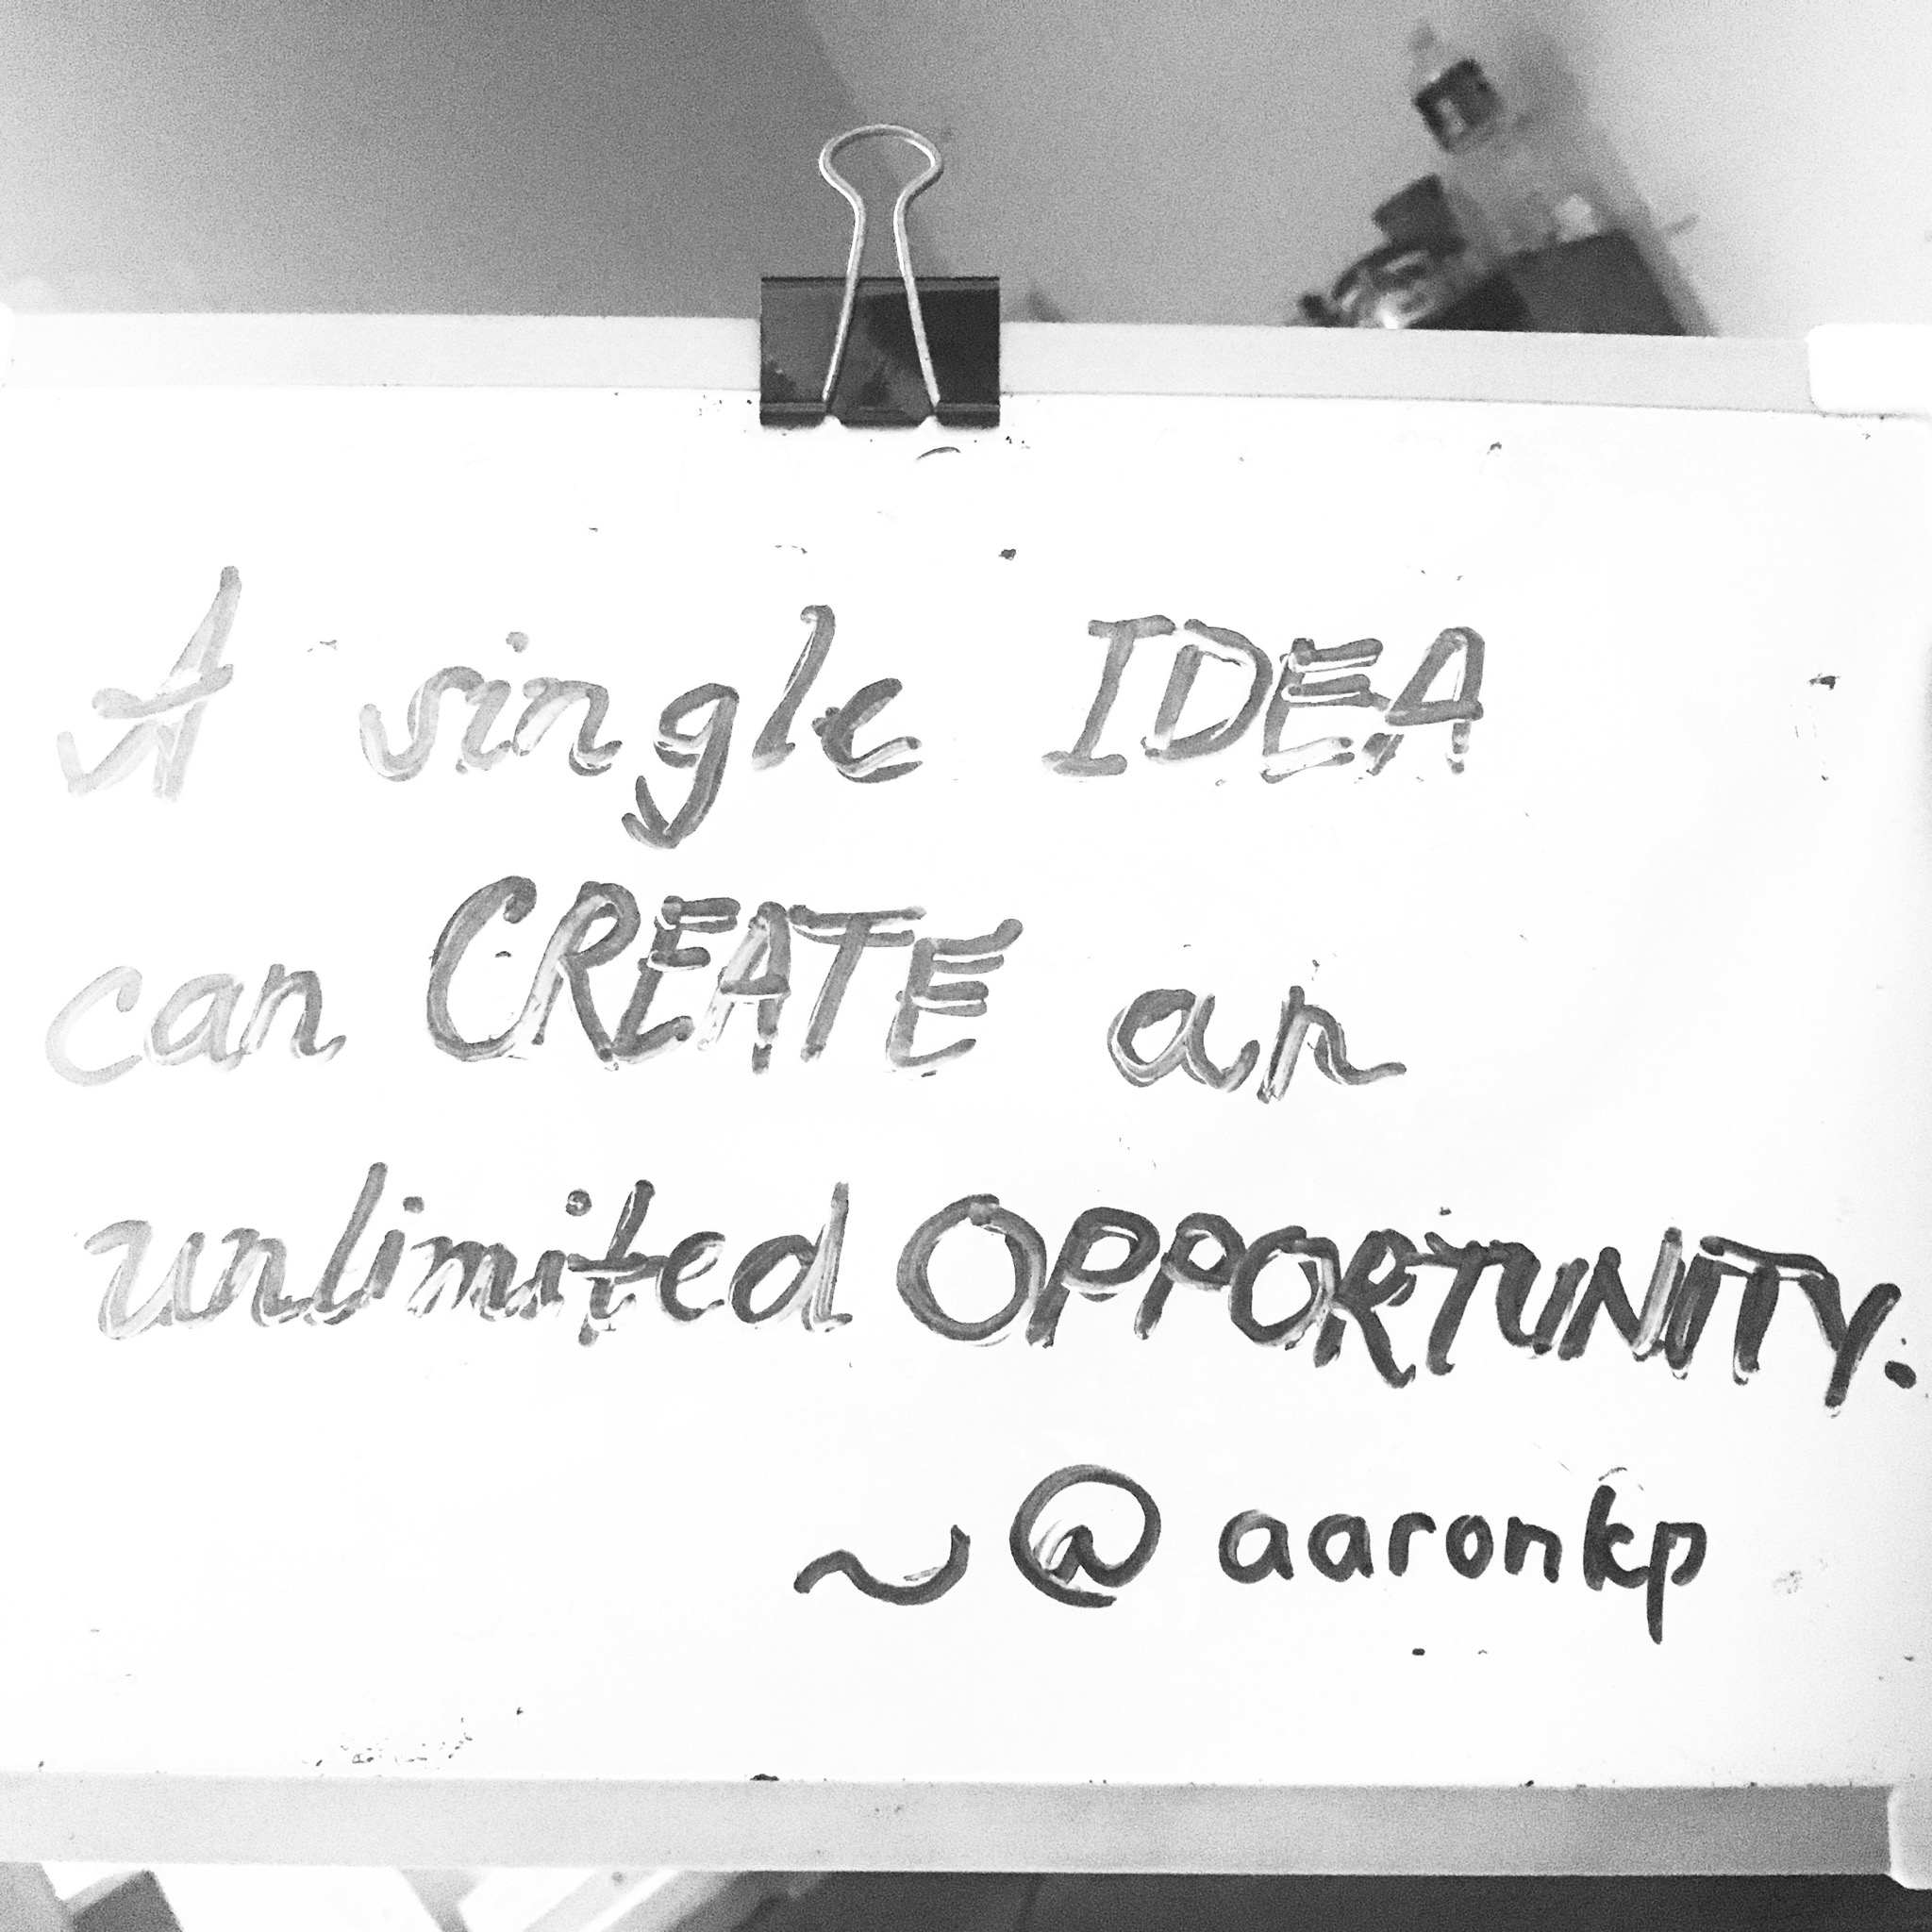 A single IDEA
can CREATE an
unlimited OPPORTUNITY.
~ @aaronkp